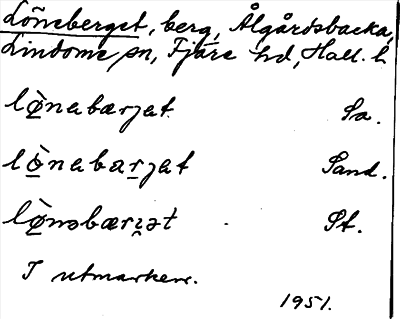 Löneberget, berg, Ålgårdsbacka,
Lindome sn, Fjäre hd, Hall. l.
lø̀nabærjat Sa.
lø̀nabarjat Sand.
lø̀nəbæri̯ət St.
I utmarken.
1951.